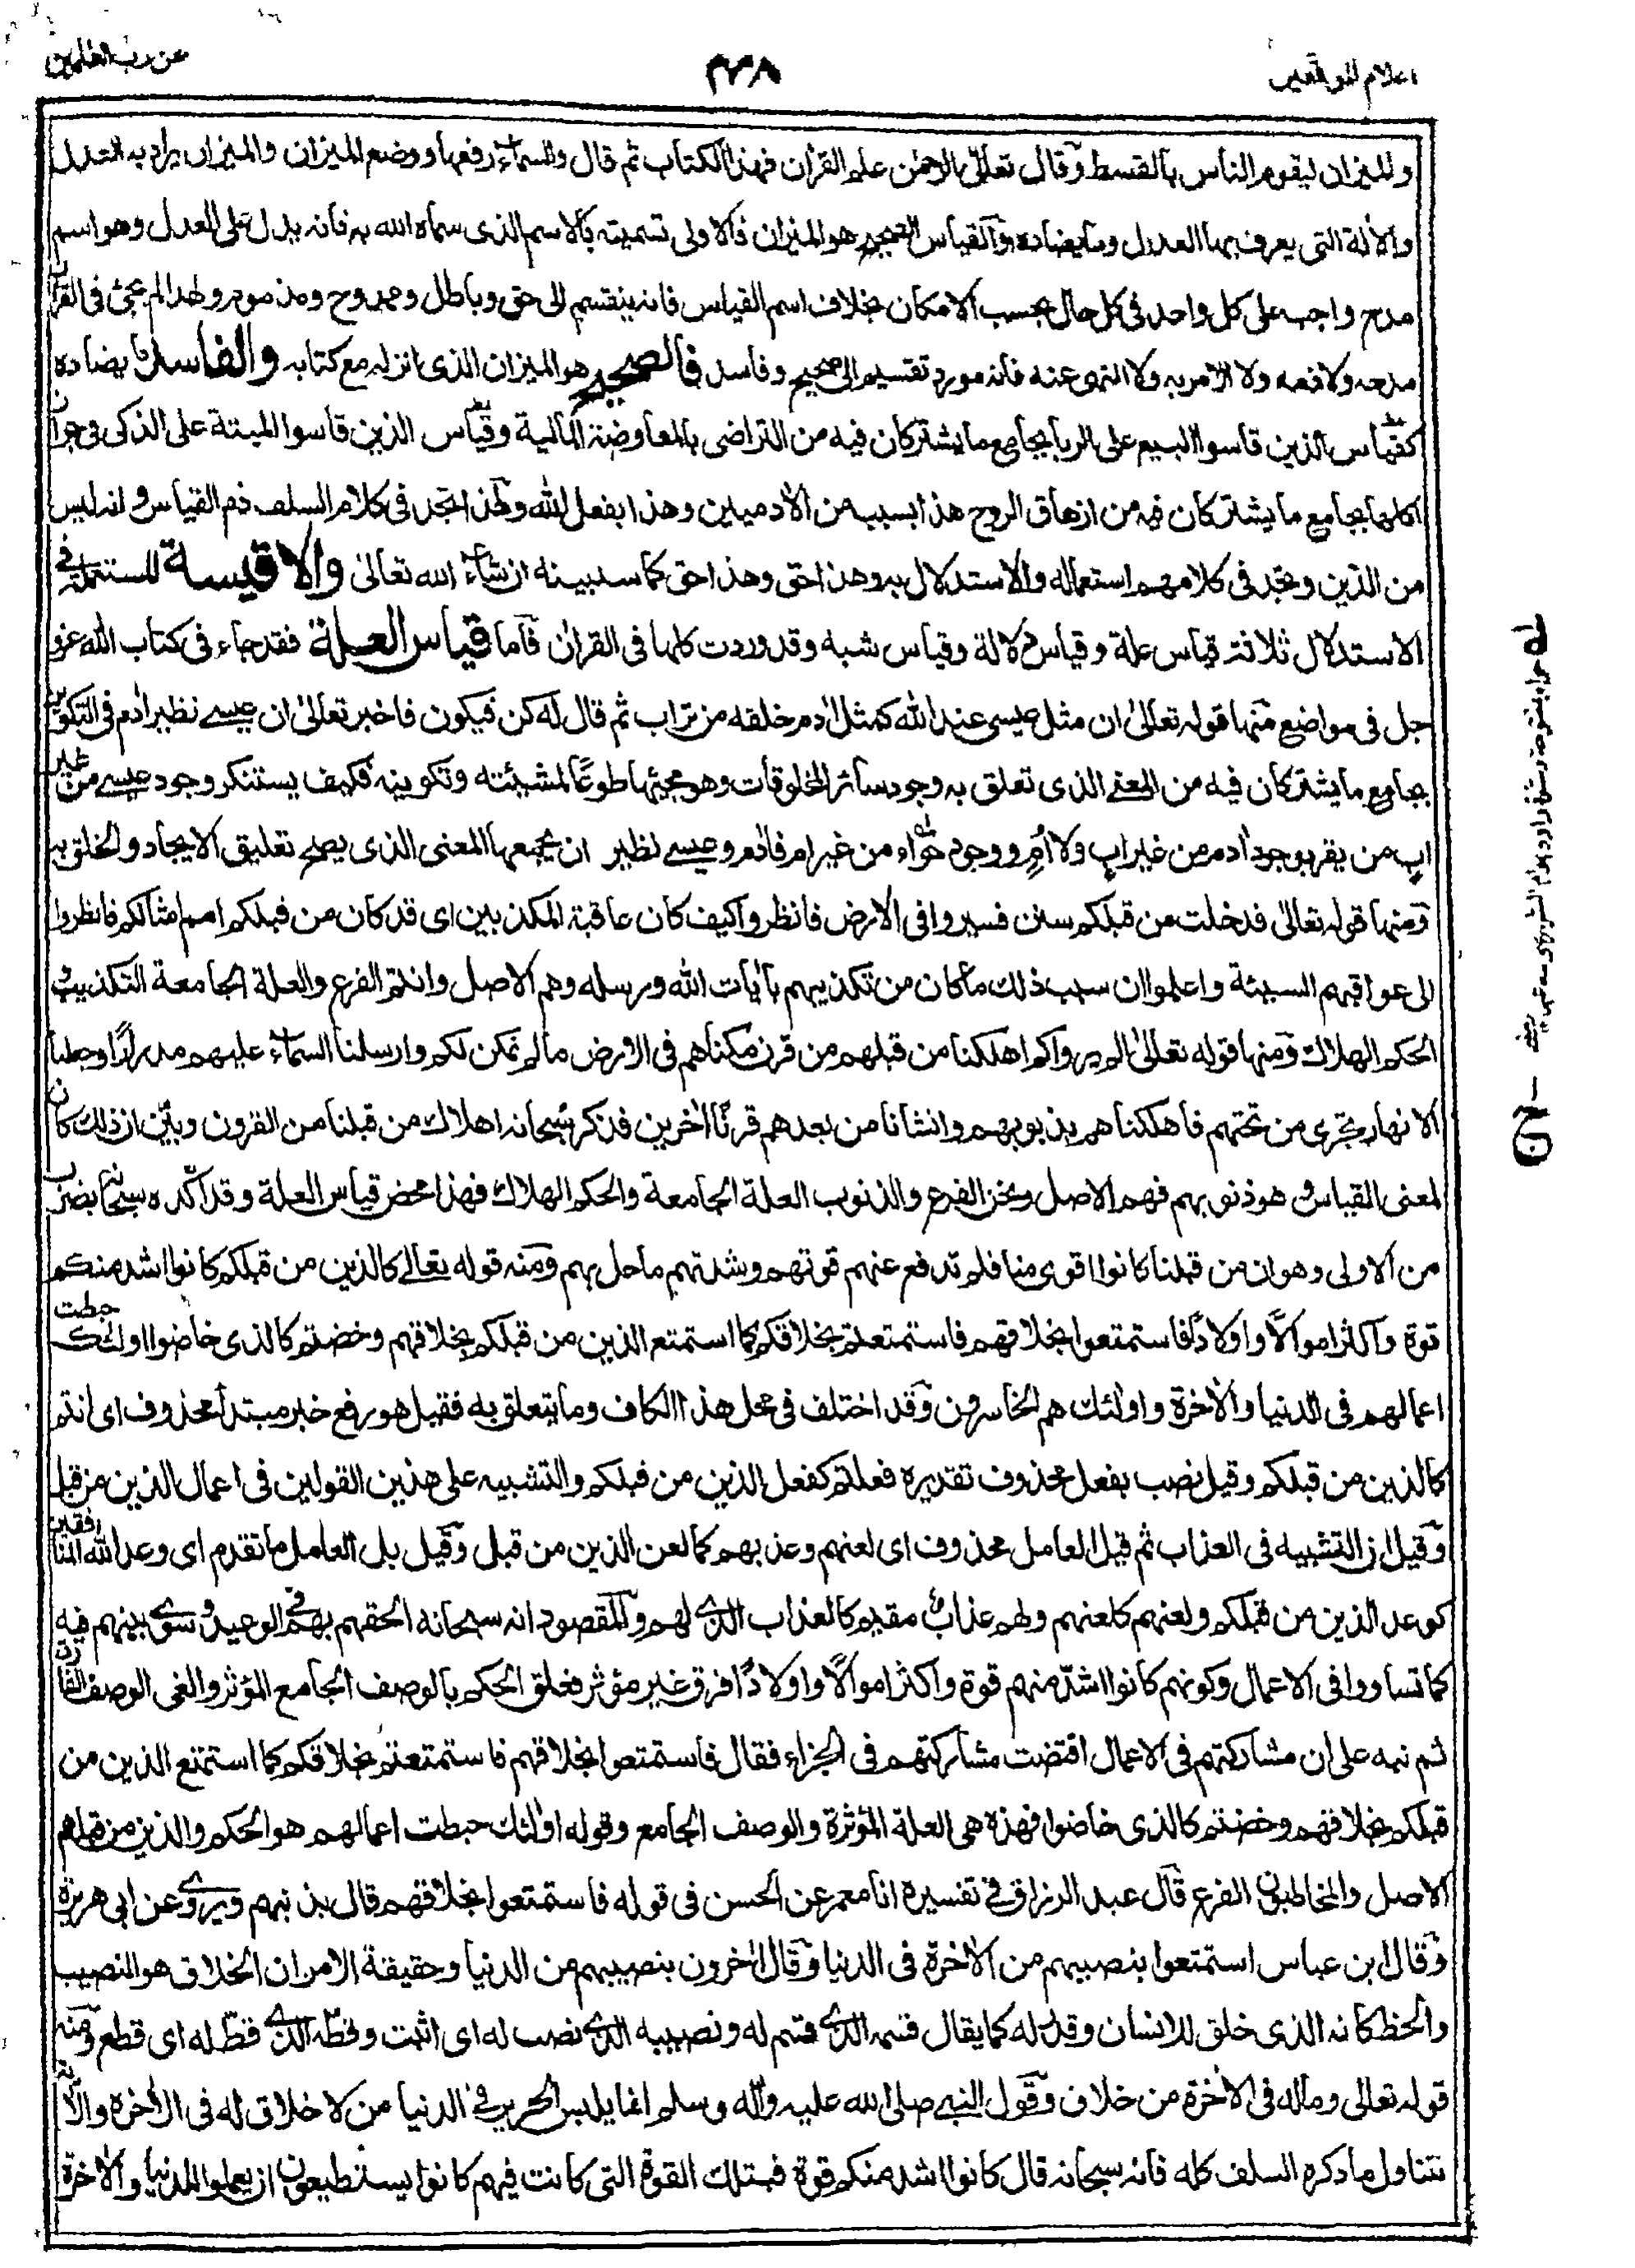 اعلام الموقعين
عن رب العلمين
والميزان ليقوم الناس بالقسط وقال تعالى الرحمن علم القرآن فهذا الكتاب ثم قال والسماء رفعها ووضع الميزان والميزان يراد به العدل
والآلة التى يعرف بها العدل وما يضاده والقياس الصحيح هو الميزان فالاولى تسميته بالاسم الذى سماه الله به فانه يدل على العدل وهو اسم
مدح واجب على كل واحد فى كل حال بحسب الامكان بخلاف اسم القياس فانه ينقسم الى حق وباطل وممدوح ومذموم ولهذا لم يجئ فى القرآن
مدحه ولا ذمه ولا الامر به ولا النهى عنه فانه مورد تقسيم الى صحيح وفاسد فالصحيح هو الميزان الذى انزله مع كتابه والفاسد ما يضاده
كقياس الذين قاسوا البيع على الربا بجامع ما يشتركان فيه من التراضى بالمعاوضة المالية وقياس الذين قاسوا الميتة على الذكى فى جواز
اكلها بجامع ما يشتركان فيه من ازهاق الروح هذا بسبب من الآدميين وهذا بفعل الله ولهذا تجد فى كلام السلف ذم القياس وانه ليس
من الدين وتجد فى كلامهم استعماله والاستدلال به وهذا حق وهذا حق كما سنبينه ان شاء الله تعالى والاقيسة المستعملة فى
الاستدلال ثلاثة قياس علة وقياس دلالة وقياس شبه وقد وردت كلها فى القرآن فاما قياس العلة فقد جاء فى كتاب الله عز و
جل فى مواضع منها قوله تعالى ان مثل عيسى عند الله كمثل آدم خلقه من تراب ثم قال له كن فيكون فاخبر تعالى ان عيسے نظير آدم فى التكوين
بجامع ما يشتركان فيه من المعنے الذى تعلق به وجود سائر المخلوقات وهو مجيئها طوعًا لمشيئته وتكوينه فكيف يستنكر وجود عيسے من غير
اب من يقر بوجود آدم من غير اب ولا ام ووجود حواء من غير ام فآدم وعيسے نظيران يجمعهما المعنى الذى يصح تعليق الايجاد والخلق به
ومنها قوله تعالى قد خلت من قبلكم سنن فسيروا فى الارض فانظروا كيف كان عاقبة المكذبين اى قد كان من قبلكم امم امثالكم فانظروا
الى عواقبهم السيئة واعلموا ان سبب ذلك ما كان من تكذيبهم بآيات الله ورسله وهم الاصل وانتم الفرع والعلة الجامعة التكذيب و
الحكم الهلاك ومنها قوله تعالى الم يروا كم اهلكنا من قبلهم من قرن مكناهم فى الارض ما لم نمكن لكم وارسلنا السماء عليهم مدرارًا وجعلنا
الانهار تجرى من تحتهم فاهلكناهم بذنوبهم وانشأنا من بعدهم قرنًا آخرين فذكر سبحانه اهلاك من قبلنا من القرون وبيّن ان ذلك كان
لمعنى القياس وهو ذنوبهم فهم الاصل ونحن الفرع والذنوب العلة الجامعة والحكم الهلاك فهذا محض قياس العلة وقد اكّده سبحانه بضرب
من الاولى وهو ان من قبلنا كانوا اقوى منا فلم تدفع عنهم قوتهم وشدتهم ما حل بهم ومنه قوله تعالے كالذين من قبلكم كانوا اشد منكم
قوة واكثر اموالًا واولادًا فاستمتعوا بخلاقهم فاستمتعتم بخلاقكم كما استمتع الذين من قبلكم بخلاقهم وخضتم كالذى خاضوا اولئك حبطت
اعمالهم فى الدنيا والآخرة واولئك هم الخاسرون وقد اختلف فى محل هذا الكاف وما يتعلق به فقيل هو رفع خبر مبتدأ محذوف اى انتم
كالذين من قبلكم وقيل نصب بفعل محذوف تقديره فعلتم كفعل الذين من قبلكم والتشبيه على هذين القولين فى اعمال الذين من قبل
وقيل ان التشبيه فى العذاب ثم قيل العامل محذوف اى لعنهم وعذبهم كما لعن الذين من قبل وقيل بل العامل ما تقدم اى وعد الله المنافقين
كوعد الذين من قبلكم ولعنهم كلعنهم ولهم عذاب مقيم كالعذاب الذى لهم والمقصود انه سبحانه الحقهم بهم فى الوعيد وسوى بينهم فيه
كما تساووا فى الاعمال وكونهم كانوا اشدّ منهم قوة واكثر اموالًا واولادًا فرق غير مؤثر فعلق الحكم بالوصف الجامع المؤثر والغى الوصف الفارق
ثم نبه على ان مشاركتهم فى الاعمال اقتضت مشاركتهم فى الجزاء فقال فاستمتعوا بخلاقهم فاستمتعتم بخلاقكم كما استمتع الذين من
قبلكم بخلاقهم وخضتم كالذى خاضوا فهذه هى العلة المؤثرة والوصف الجامع وقوله اولئك حبطت اعمالهم هو الحكم والذين من قبلهم
الاصل والمخاطبون الفرع قال عبد الرزاق فے تفسيره انا معمر عن الحسن فى قوله فاستمتعوا بخلاقهم قال بدينهم ويروے عن ابى هريرة
وقال ابن عباس استمتعوا بنصيبهم من الآخرة فى الدنيا وقال آخرون بنصيبهم من الدنيا وحقيقة الامر ان الخلاق هو النصيب
والحظ كانه الذى خلق للانسان وقدر له كما يقال قسمه الذے قسم له ونصيبه الذے نصب له اى اثبت وقطّه الذے قطّ له اى قطع ومنه
قوله تعالى وماله فى الآخرة من خلاق وقول النبے صلى الله عليه وآله وسلم انما يلبس الحرير فے الدنيا من لا خلاق له فى الآخرة والآية
تتناول ما ذكره السلف كله فانه سبحانه قال كانوا اشد منكم قوة فبتلك القوة التى كانت فيهم كانوا يستطيعون ان يعملوا للدنيا والآخرة